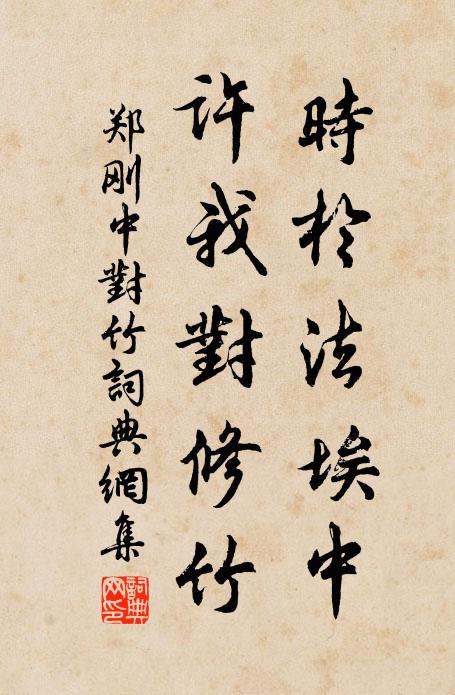 時於法埃中
許我對修竹
郑刚中對竹詞典網集
詞典网印